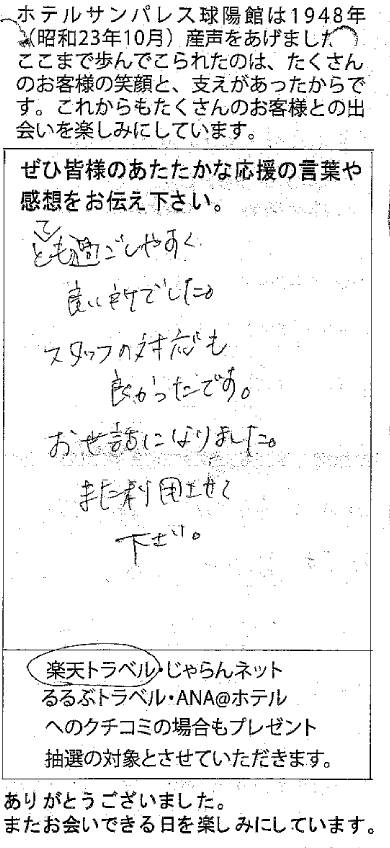 ホテルサンパレス球陽館は1948年
(昭和23年10月）産声をあげました
ここまで歩んでこられたのは、たくさん
のお客様の笑顔と、支えがあったからで
す。これからもたくさんのお客様との出
会いを楽しみにしています。
ぜひ皆様のあたたかな応援の言葉や
感想をお伝え下さい。
とても過ごしやすく
良い所でした。
スタッフの対応も
良かったです。
お世話になりました。
また利用させて
下さい。
楽天トラベル・じゃらんネット
るるぶトラベル・ANA@ホテル
へのクチコミの場合もプレゼント
抽選の対象とさせていただきます。
ありがとうございました。
またお会いできる日を楽しみにしています。